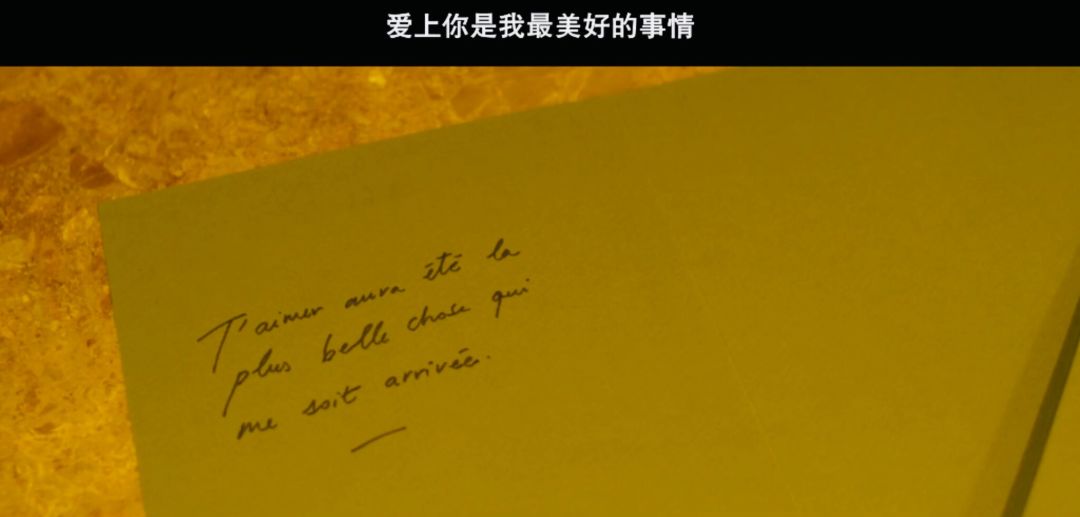 爱上你是我最美好的事情
T'aimer aura été la
plus belle chose qui
me soit arrivée.